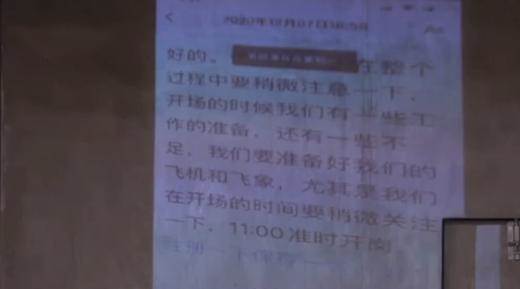 好的。 在整个
过程中要稍微注意一下，
开场的时候我们有一些工
作的准备，还有一些不
足，我们要准备好我们的
飞机和飞象，尤其是我们
在开场的时间要稍微关注
一下，11:00准时开岗